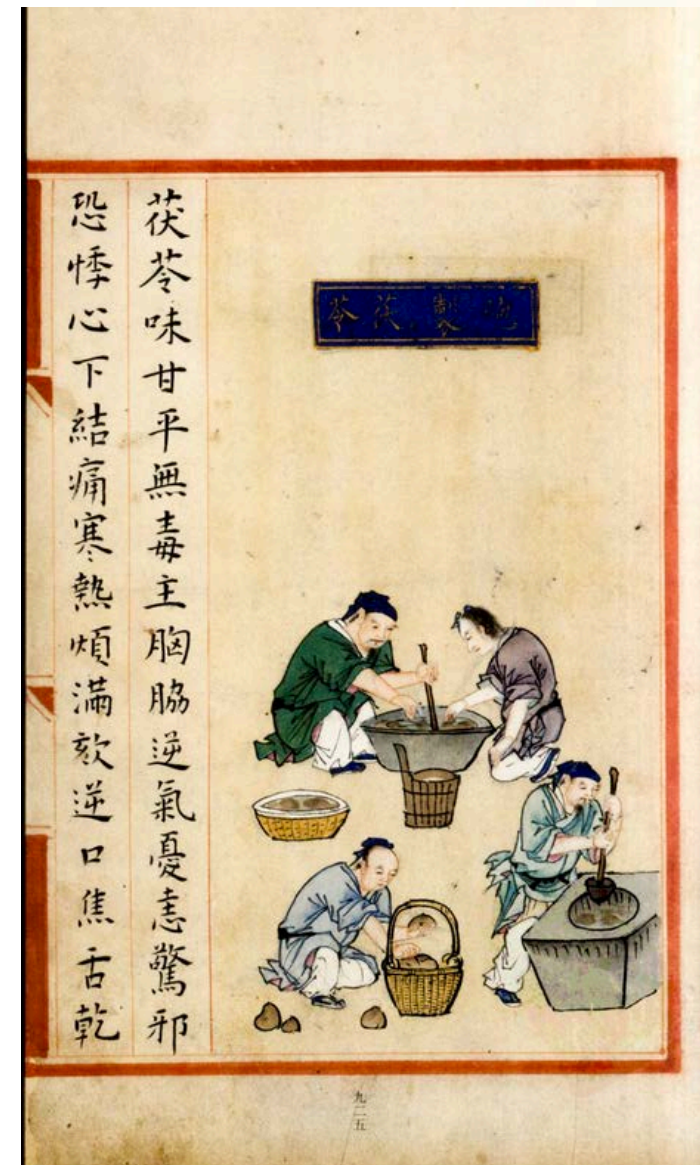 炮製茯苓
茯苓味甘平無毒主胸脇逆氣憂恚驚邪
恐悸心下結痛寒熱煩滿欬逆口焦舌乾
九二五